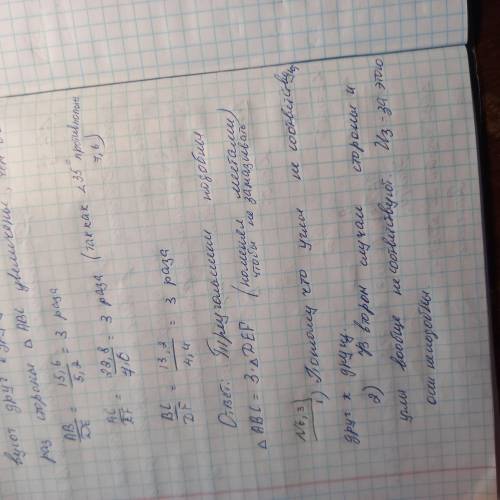 вуют друг другу
раз стороны △ ABC увеличены, чем
AB/DE = 15,6/5,2 = 3 раза
AC/EF = 22,8/7,6 = 3 раза (так как ∠35° противополож 7,6)
BC/DF = 13,2/4,4 = 3 раза
Ответ: Треугольники подобны
△ ABC = 3·△DEF (поменял местами чтобы не замазывать)
№6,3
1) Потому что углы не соответствую
друг к другу.
2) Из втором случаи стороны и
углы вообще не соответствуют. Из-за этого
они неподобны